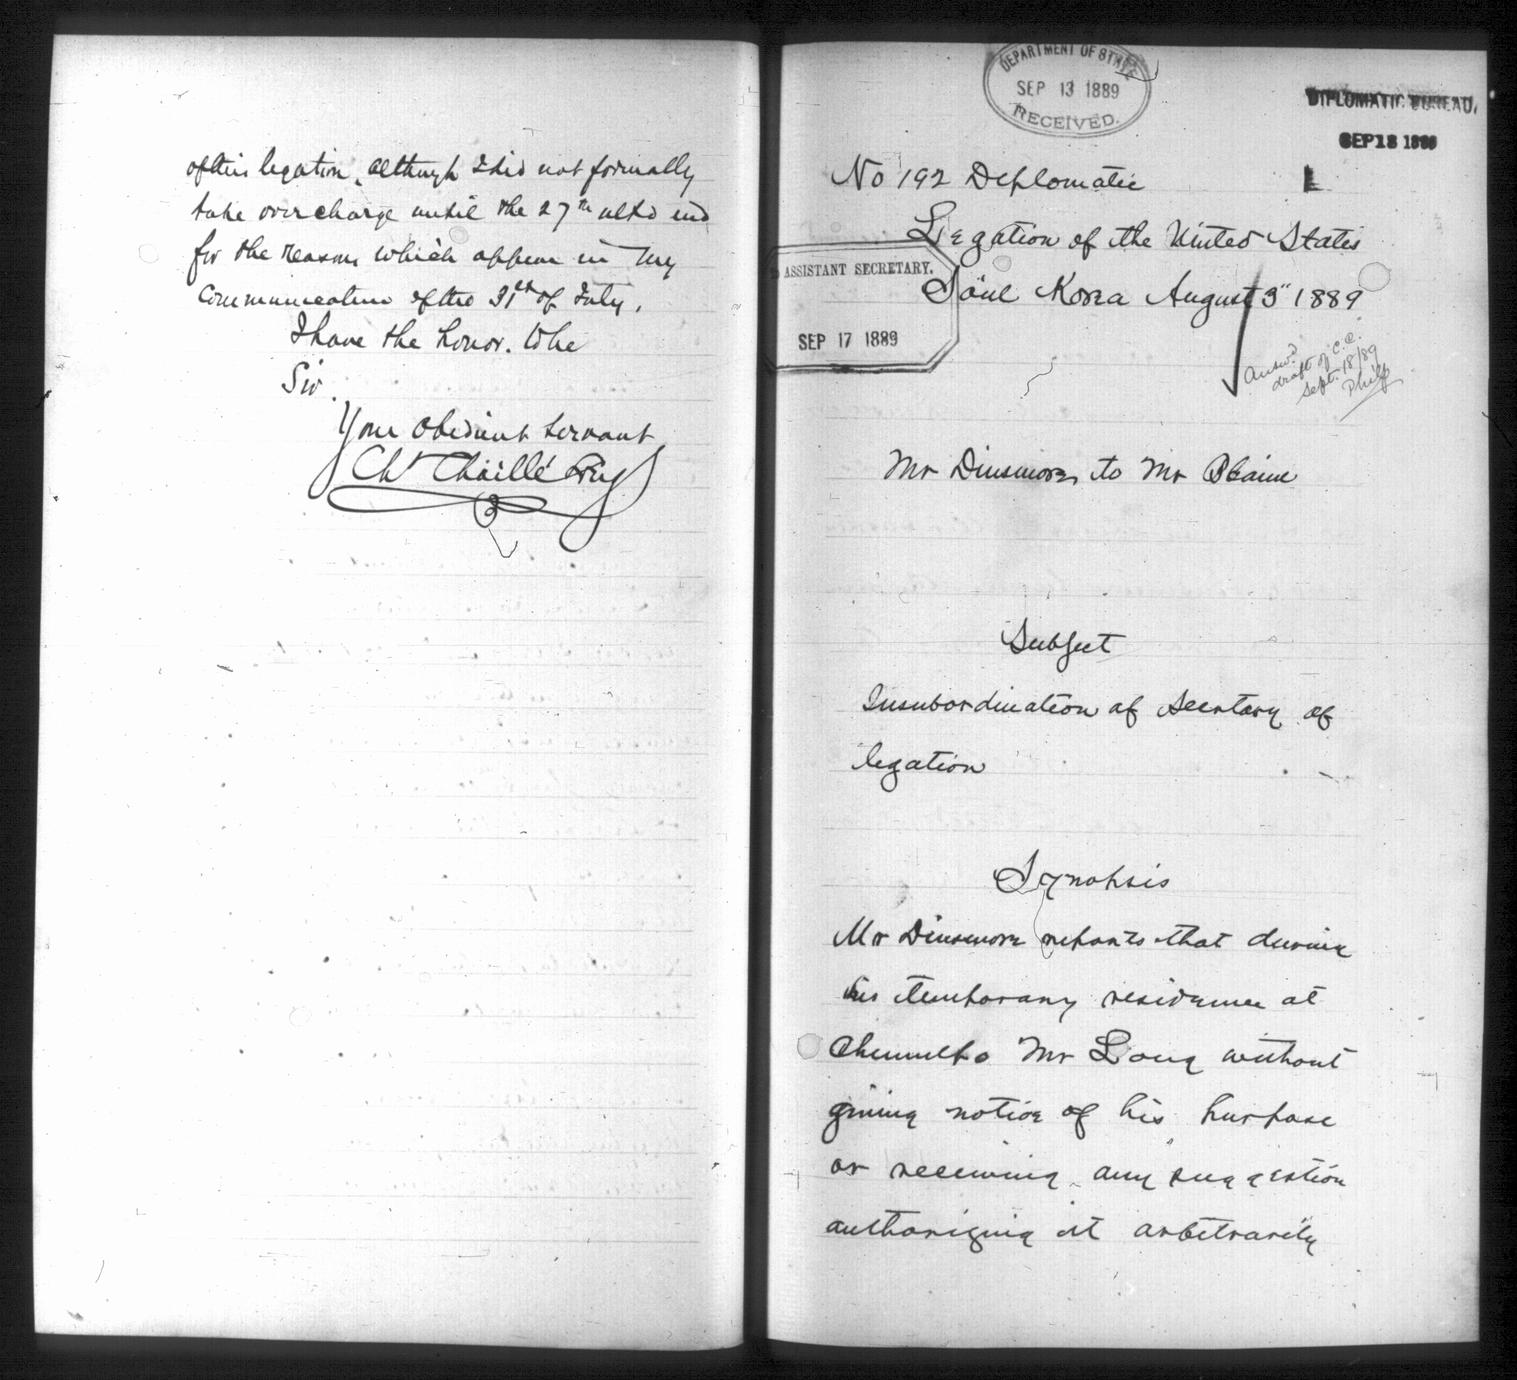 of this legation, although I did not formally
take over charge until the 27th ulto and
for the reasons which appear in my
communication of the 31st of July.
I have the honor. to be
Sir.
Your obedient servant
Ch Chaillé Long
DEPARTMENT OF STATE
SEP 13 1889
RECEIVED.
DIPLOMATIC BUREAU.
SEP 18 1889
No 192 Diplomatic
Legation of the United States
ASSISTANT SECRETARY.
SEP 17 1889
Söul Korea August 3" 1889
Answd
draft of C.C.
Sept. 18/89
Philp
Mr Dinsmore, to Mr Blaine
Subject
Insubordination of Secretary of
legation
Synopsis
Mr Dinsmore reports that during
his temporary residence at
Chemulpo Mr Long without
giving notice of his purpose
or receiving any suggestion
authorizing it arbitrarily